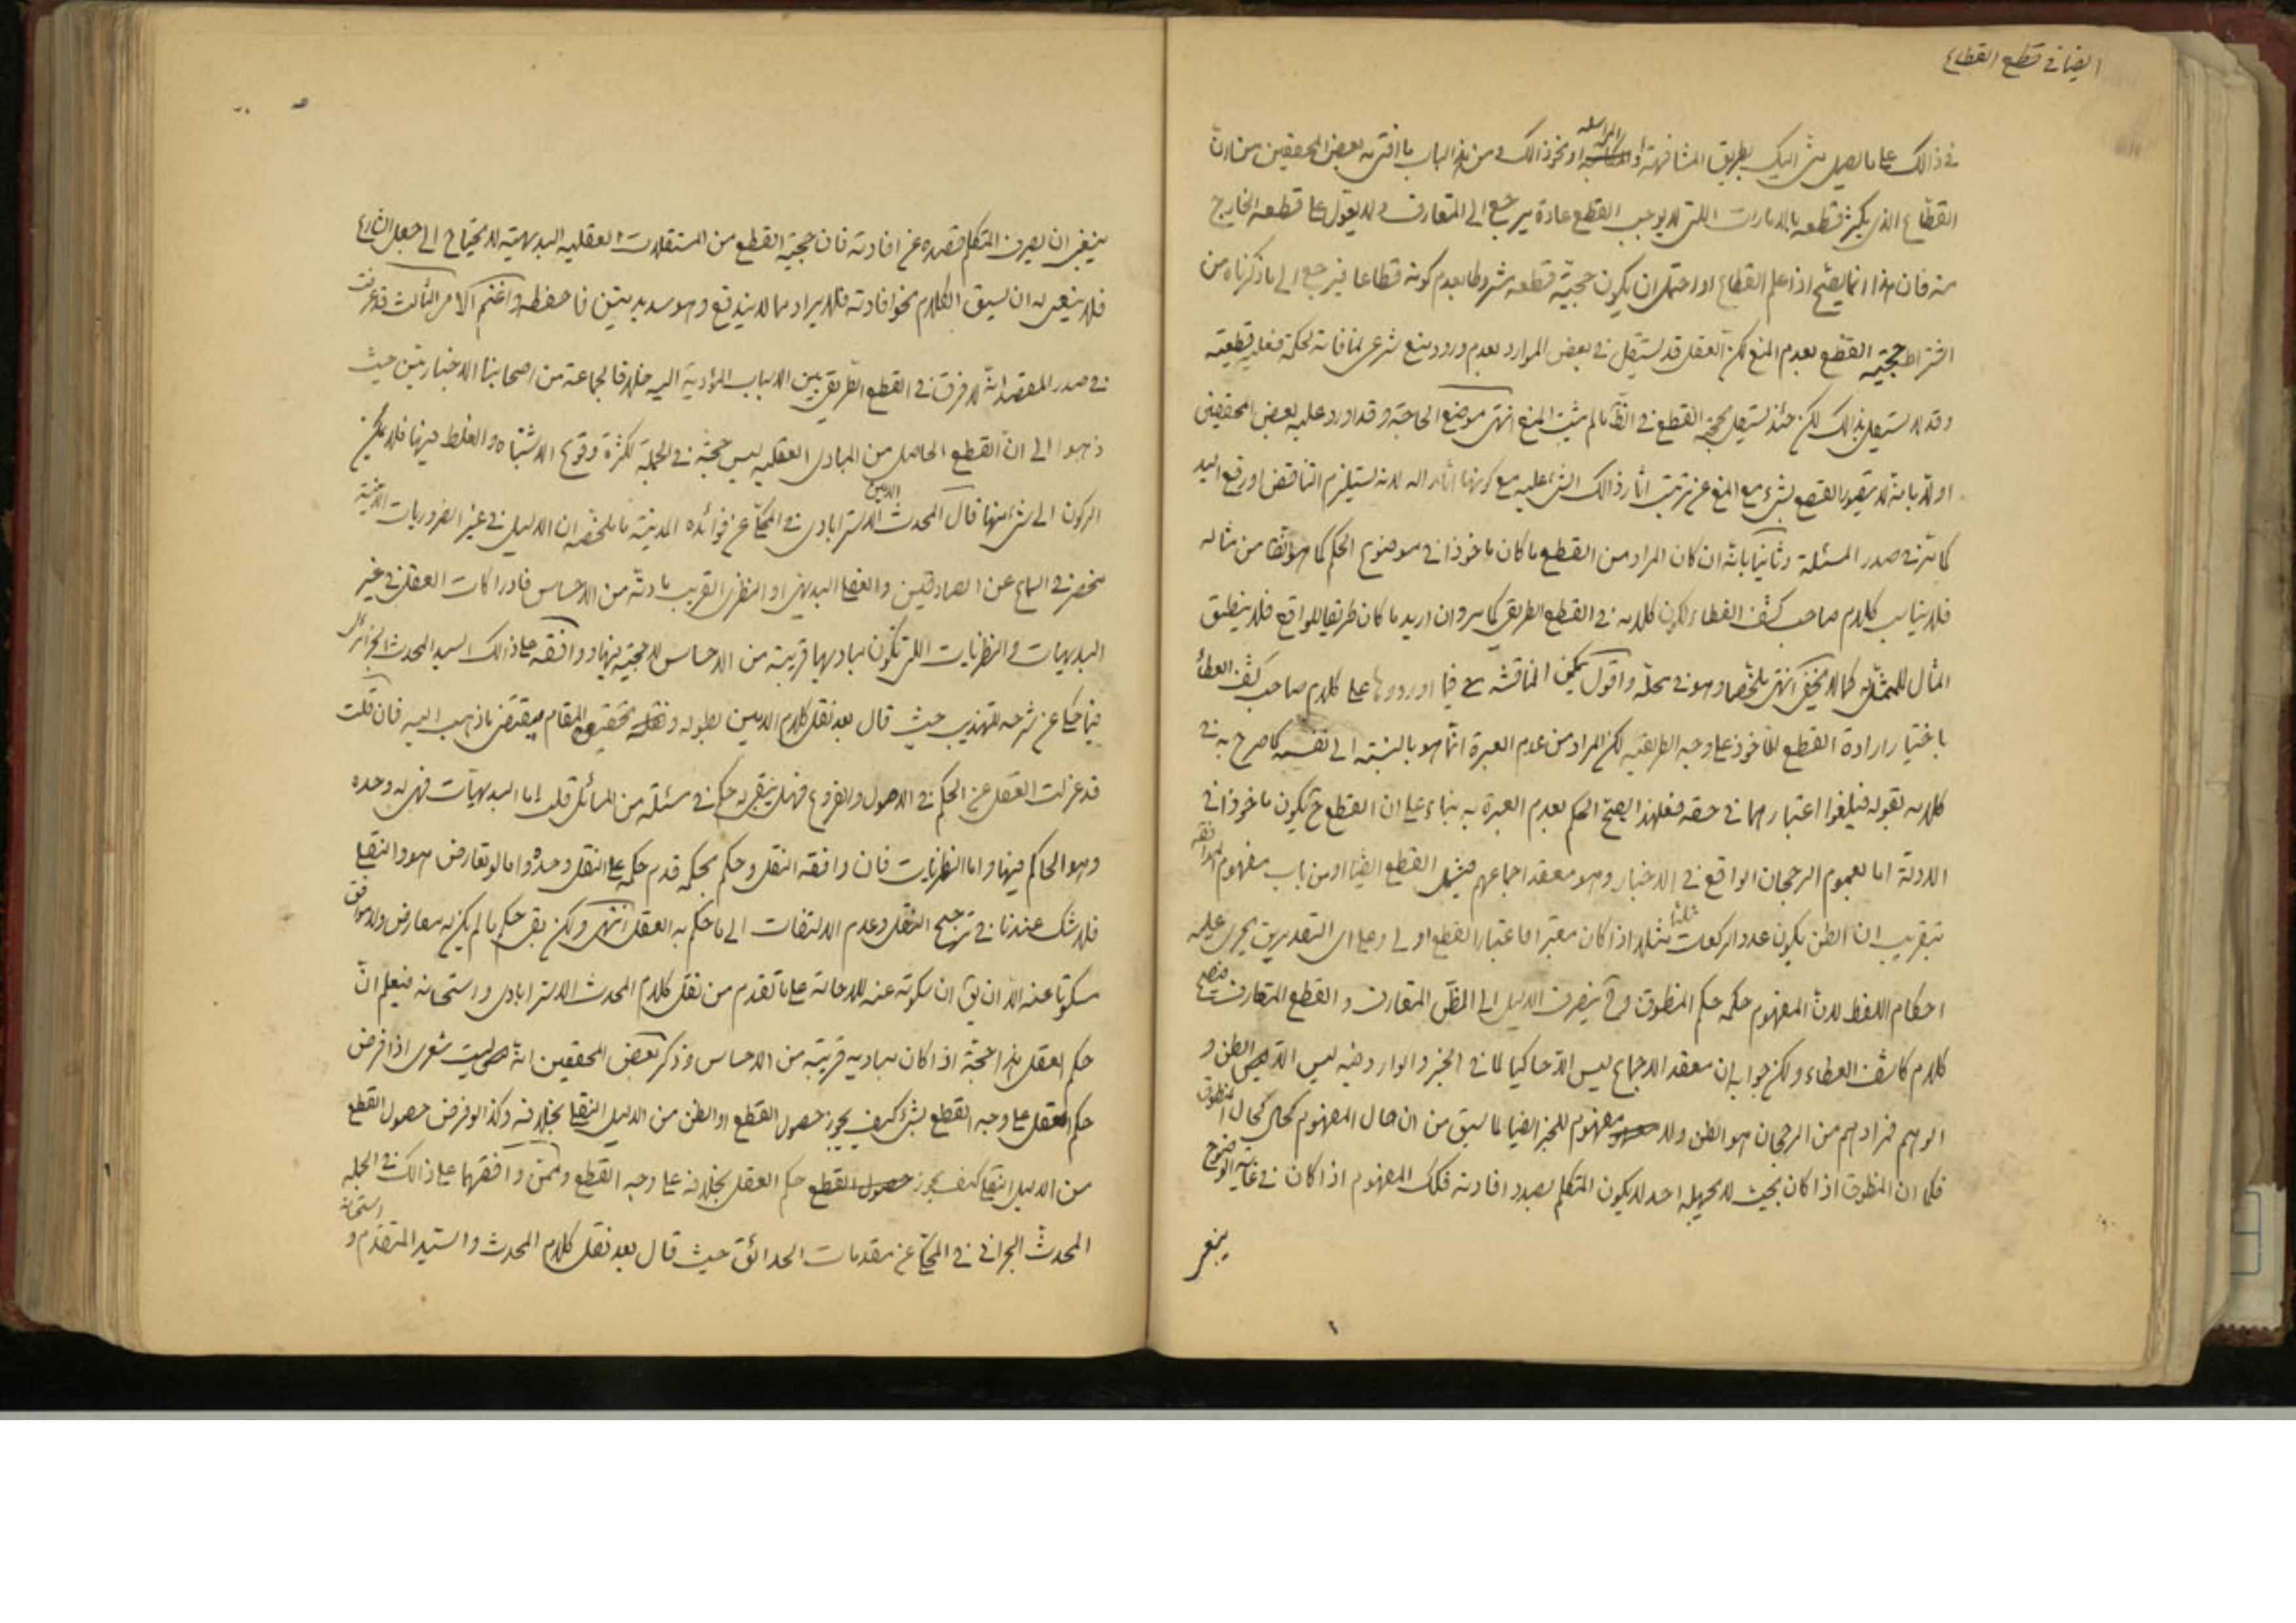 ايضا فى قطع القطاع
فى ذالك على ما يصل منى اليك بطريق المشافهة او المراسلة او نحو ذالك و من هذا الباب ما افتى به بعض المحققين من ان
القطاع الذى يكثر قطعه بالامارات التى لا يوجب القطع عادة يرجع الى المتعارف و لا يعول على قطعه الخارج
منه فان هذا انما يصح اذا علم القطاع او احتمل ان يكون حجية قطعه مشروطا بعدم كونه قطاعا فيرجع الى ما ذكرناه من
اشتراط حجية القطع بعدم المنع لكن العقل قد يستقل فى بعض الموارد بعدم ورود منع شرعى لمنافاته لحكمة فعلية قطعية
و قد لا يستقل بذالك لكن حينئذ يستقل بحجية القطع فى الظاهر ما لم يثبت المنع انتهى موضع الحاجة و قد اورد عليه بعض المحققين
اولا بانه لا يتصور القطع بشىء مع المنع عن ترتيب اثار ذالك الشىء عليه مع كونها اثارا له لانه يستلزم التناقض او رفع اليد
كما مر فى صدر المسئلة و ثانيا بانه ان كان المراد من القطع ما كان ماخوذا فى موضوع الحكم كما هو من مثاله
فلا يناسب كلام صاحب كشف الغطاء لكون كلامه فى القطع الطريقى كما مر و ان اريد ما كان طريقا للواقع فلا ينطبق
المثال للممثل له كما لا يخفى انتهى ملخصا و هو فى محله و اقول يمكن المناقشة فيما اوردوها على كلام صاحب كشف الغطاء
باختيار ارادة القطع الماخوذ على وجه الطريقية لكن المراد من عدم العبرة انما هو بالنسبة الى نفسه كما صرح به فى
كلامه بقوله فيلغوا اعتبارهما فى حقه فعلى هذا يصح الحكم بعدم العبرة به بناء على ان القطع ح يكون ماخوذا فى
الادلة اما لعموم الرجحان الواقع فى الاخبار و هو معقد اجماعهم فيشمل القطع ايضا او من باب مفهوم الموافقة
بتقريب ان الظن بكون عدد الركعات ثلثا مثلا اذا كان معتبرا فاعتبار القطع اولى و على اى التقديرين يجرى عليه
احكام اللفظ لان المفهوم حكمه حكم المنطوق و ح ينصرف الدليل الى الظن المتعارف و القطع المتعارف فيصح
كلام كاشف الغطاء و لكن جوابه ان معقد الاجماع ليس الا حاكيا لما فى الخبر و الوارد فيه ليس الا الظن و
الوهم فمرادهم من الرجحان هو الظن و لا مفهوم للخبر ايضا لما سبق من ان حال المفهوم كحال المنطوق
فكما ان المنطوق اذا كان بحيث لا يجهله احد لا يكون المتكلم بصدد افادته فكك المفهوم اذا كان فى غاية الوضوح
ينبغى
ينبغى ان يصرف المتكلم قصده عن افادته فان حجية القطع من المستقلات العقلية البديهية لا يحتاج الى جعل الشارع
فلا ينبغى له ان يسوق الكلام نحو افادته فالايراد مما لا يندفع و هو سديد متين فاحفظه و اغتنم الامر الثالث قد عرفت
فى صدر المقصد انه لا فرق فى القطع الطريقى بين الاسباب المؤدية اليه خلافا لجماعة من اصحابنا الاخباريين حيث
ذهبوا الى ان القطع الحاصل من المبادى العقلية ليس حجة فى الجملة لكثرة وقوع الاشتباه و الغلط فيها فلا يمكن
الركون الى شىء منها قال المحدث الامين الاسترابادى فى المحكى عن فوائده المدنية ما ملخصه ان الدليل فى غير الضروريات الدينية
منحصر فى السماع عن الصادقين و العقل البديهى او النظرى القريب مادته من الاحساس فادراكات العقل فى غير
البديهيات و النظريات التى تكون مباديها قريبة من الاحساس لا حجية فيها و وافقه على ذالك السيد المحدث الجزائرى
فيما حكى عن شرحه للتهذيب حيث قال بعد نقل كلام الامين بطوله و تحقيق المقام يقتضى ما ذهب اليه فان قلت
قد عزلت العقل عن الحكم فى الاصول و الفروع فهل يبقى له حكم فى مسئلة من المسائل قلت اما البديهيات فهى له وحده
و هو الحاكم فيها و اما النظريات فان وافقه النقل و حكم بحكمه قدم حكمه على النقل وحده و اما لو تعارض هو و النقلى
فلا شك عندنا فى ترجيح النقل و عدم الالتفات الى ما حكم به العقل انتهى و لكن بقى حكم ما لم يكن له معارض و لا موافق
مسكوتا عنه الا ان يق ان سكوته عنه للاحالة على ما تقدم من نقل كلام المحدث الاسترابادى و استحسانه فيعلم ان
حكم العقل هذا حجة اذا كان مباديه قريبة من الاحساس و ذكر بعض المحققين انه ليت شعرى اذا فرض
حكم العقل على وجه القطع بشىء كيف يجوز حصول القطع او الظن من الدليل النقلى بخلافه و كذا لو فرض حصول القطع
من الدليل النقلى كيف يجوز حصول القطع حكم العقل بخلافه على وجه القطع و ممن وافقهما على ذالك فى الجملة
المحدث البحرانى فى المحكى عن مقدمات الحدائق حيث قال بعد نقل كلام المحدث و السيد المتقدم و استحسانه